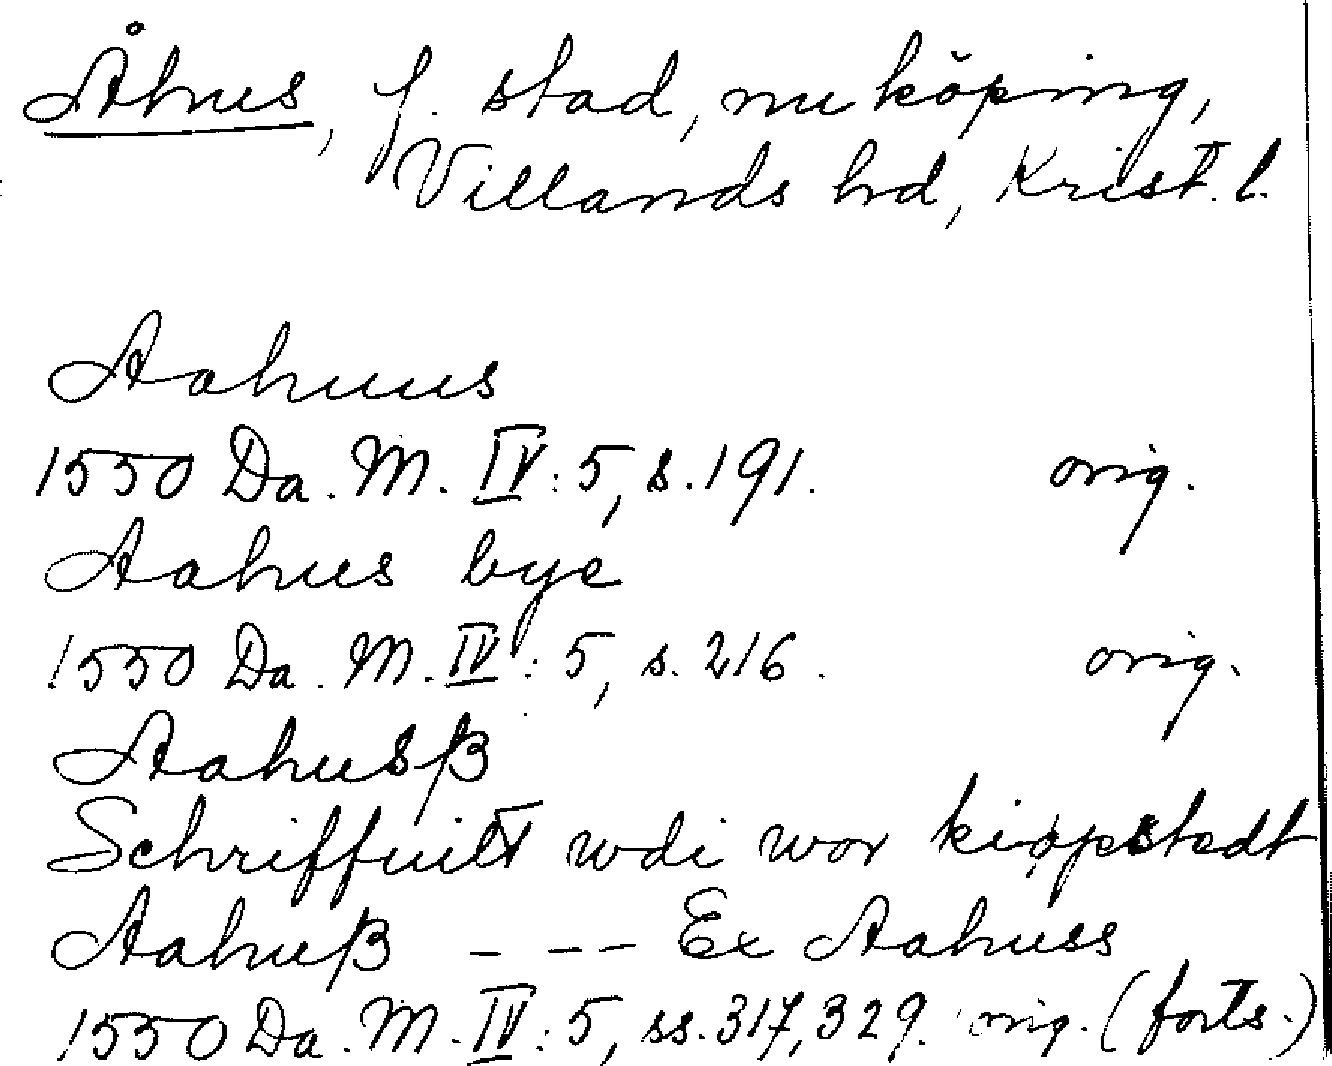 Åhus, f. stad, nu köping,
Villands hd, Krist. l.
Aahuus
1550 Da. M. IV: 5, s. 191. orig.
Aahus bye
1550 Da. M. IV: 5, s. 216. orig.
Aahusß
Schriffuitt wdi wor kiøpstedt
Aahuß - - - Ex Aahuss
1550 Da. M. IV: 5, ss. 317, 329. orig. (forts.)